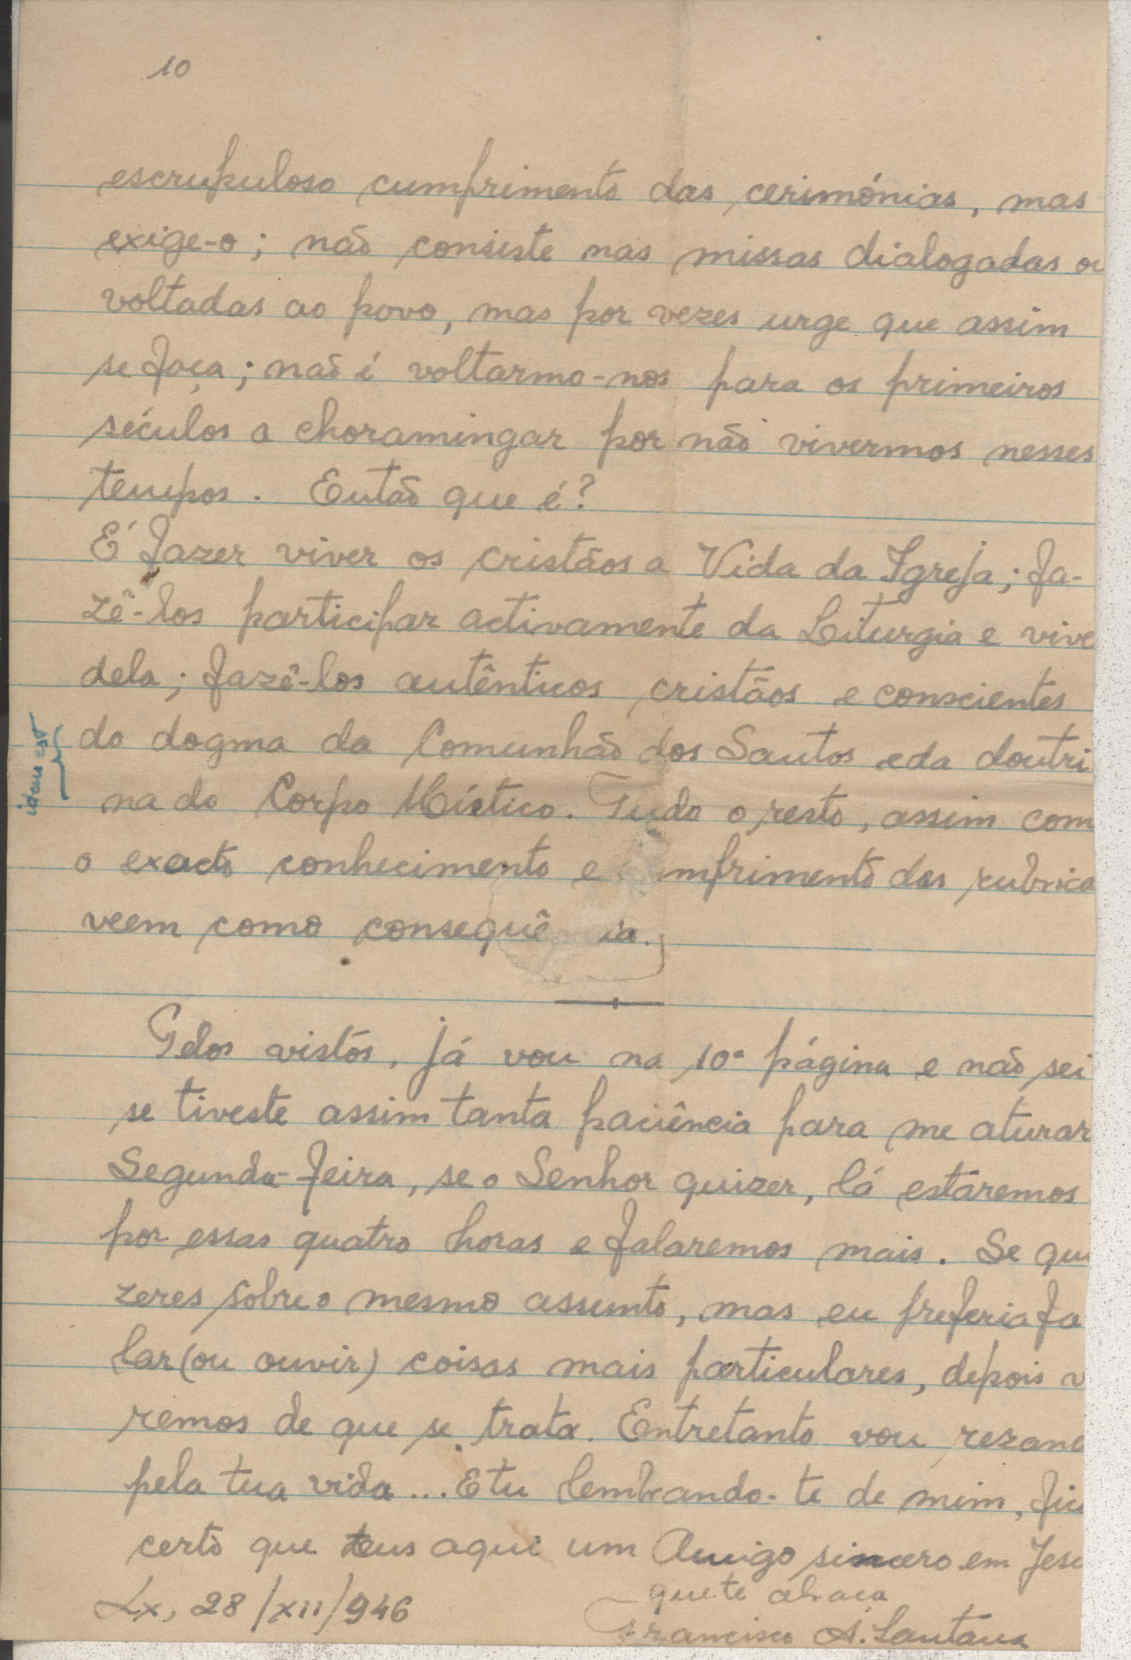 10
escrupuloso cumprimento das cerimónias, mas
exige-o; não consiste nas missas dialogadas ou
voltadas ao povo, mas por vezes urge que assim
se faça; não é voltarmo-nos para os primeiros
séculos a choramingar por não vivermos nesses
tempos. Então que é?
É fazer viver os cristãos a Vida da Igreja; fa-
zê-los participar activamente da Liturgia e vive
dela; fazê-los autênticos cristãos e conscientes
do dogma da Comunhão dos Santos e da doutri
na do Corpo Místico. Tudo o resto, assim com
o exacto conhecimento e mprimento das rubrica
veem como consequê ia.
Pelos vistos, já vou na 10ª página e não sei
se tiveste assim tanta paciência para me aturar
Segunda-feira, se o Senhor quizer, lá estaremos
por essas quatro horas e falaremos mais. Se qui
zeres sobre o mesmo assunto, mas eu preferia fa
lar (ou ouvir) coisas mais particulares, depois v
remos de que se trata. Entretanto vou rezand
pela tua vida... E tu lembrando-te de mim, fic
certo que tens aqui um Amigo sincero em Jesu
que te abraça
Lx, 28/XII/946
Francisco A. Santana